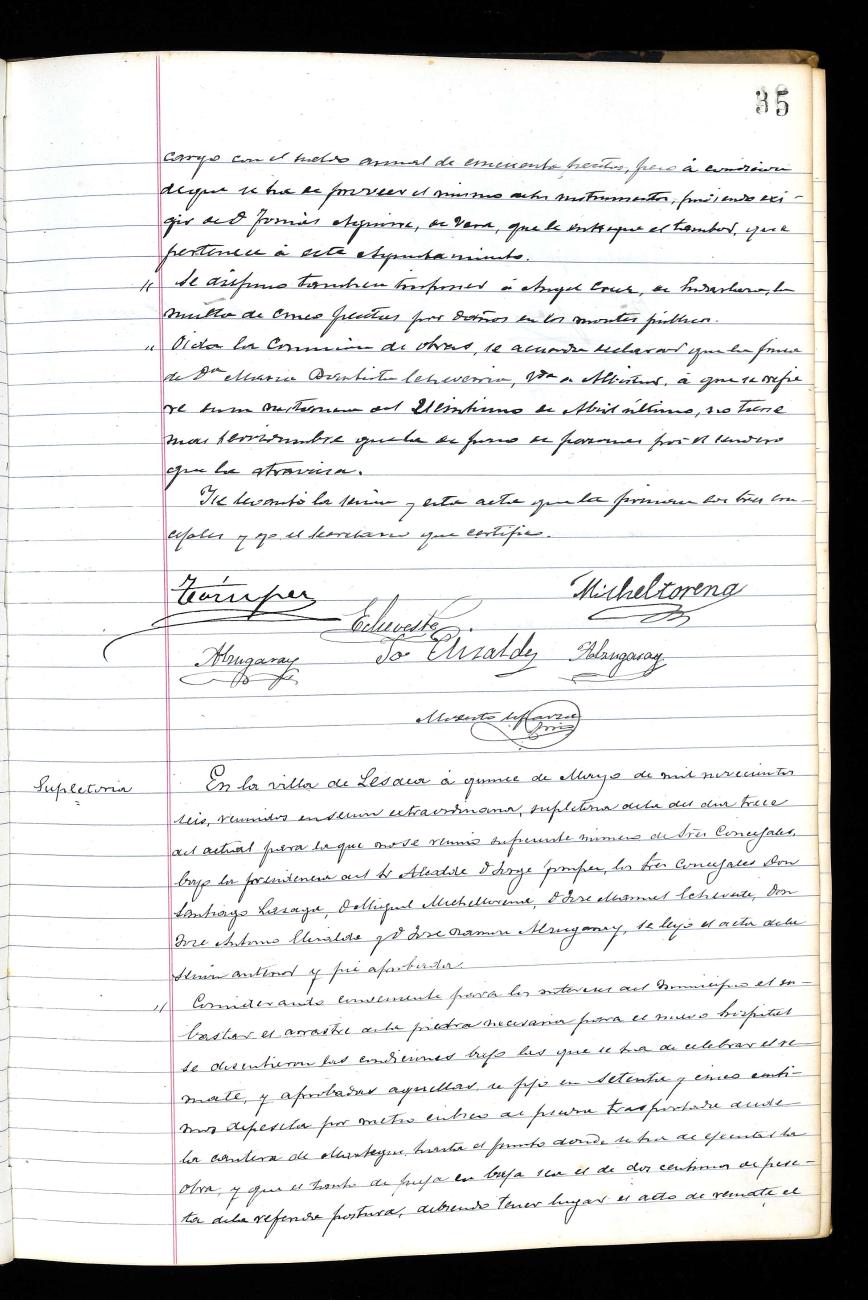 35
cargo con el sueldo anual de cincuenta pesetas, pero á condicion
de que se ha de proveer el mismo de los instrumentos, pudiendo exi-
gir de D. Tomás Aguirre, de Vera, que le entregue el tambor, que
pertenece á este Ayuntamiento.
" Se dispuso tambien imponer á Angel Cruz, de Endarlaza, la
multa de cinco pesetas por daños en los montes públicos.
" Oida la Comision de obras, se acuerda declarar que la finca
de Dña Maria Bautista Echeverria, Vda de Albistur, á que se refie
re en su instancia del veintiuno de Abril último, no tiene
mas servidumbre que la de paso de personas por el sendero
que la atraviesa.
Y se levantó la sesion y esta acta que la firman los tres con-
cejales y yo el Secretario que certifico.
Micheltorena
Echeveste
Alzugaray José Elizalde Alzugaray
Modesto
Supletoria
En la villa de Lesaca á quince de Mayo de mil novecientos
seis, reunidos en sesion extraordinaria, supletoria de la del dia trece
del actual para la que no se reunió suficiente número de tres Concejales,
bajo la presidencia del Sr Alcalde D. Jorge los tres Concejales Don
Santiago Lasaga, D. Miguel Micheltorena, D. José Manuel Echeveste, Don
José Antonio Elizalde y D. José Ramon Alzugaray, se leyó el acta de la
sesion anterior y fué aprobada.
" Considerando conveniente para los intereses del Municipio el su-
bastar el arrastre de la piedra necesaria para el nuevo hospital
se discutieron las condiciones bajo las que se ha de celebrar el re-
mate, y aprobadas aquellas se fijó en setenta y cinco centi-
mos de peseta por metro cúbico de piedra trasportada desde
la cantera de hasta el punto donde se ha de ejecutar la
obra, y que el tanto de puja en baja sea el de dos centimos de pese-
ta de la referida postura, debiendo tener lugar el acto de remate el